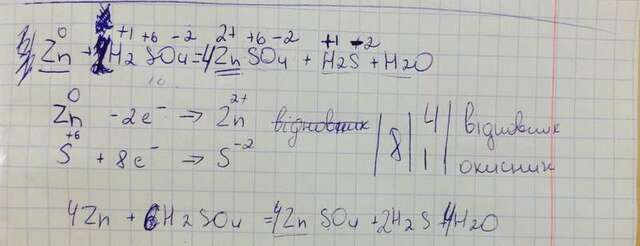 0 +1 +6 -2 2+ +6 -2 +1 -2
Zn + H2SO4 = 4ZnSO4 + H2S + H2O
0 2+
Zn - 2e⁻ → Zn відновник | 8 | 4 | відновник
+6
S + 8e⁻ → S⁻² 1 | окисник
4Zn + 6H2SO4 = 4ZnSO4 + 2H2S 4H2O